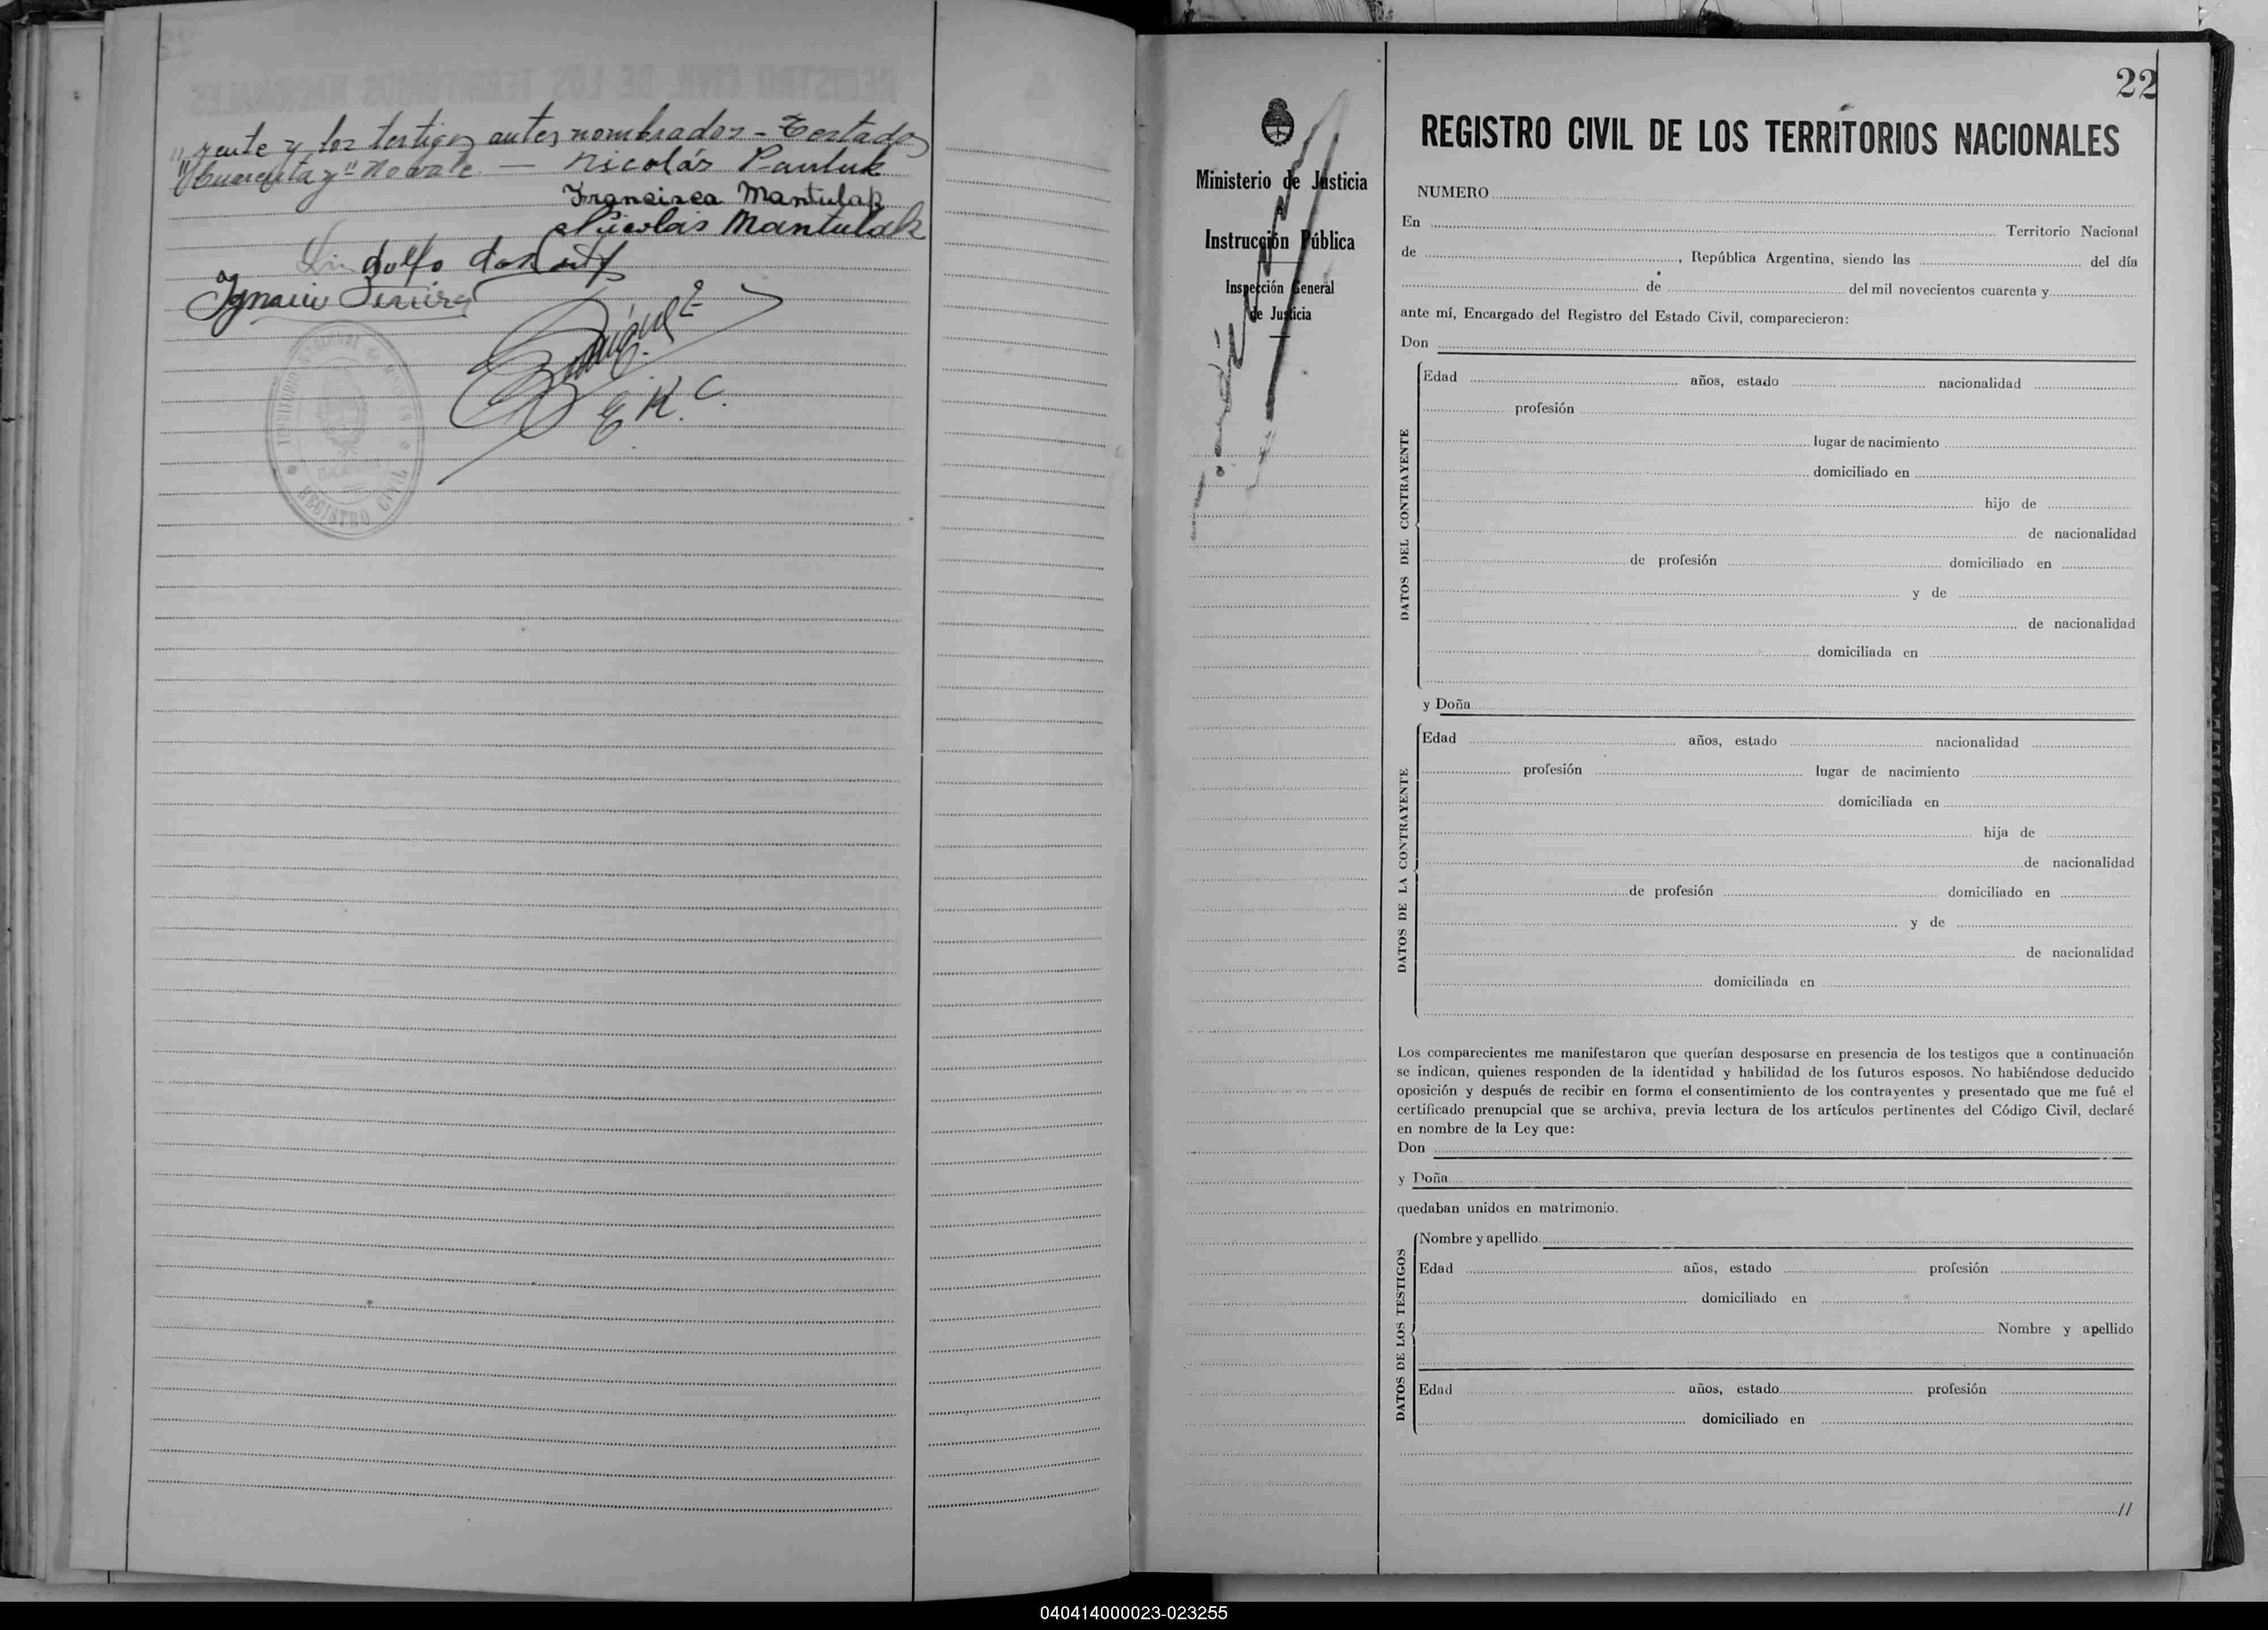 yente y los testigos antes nombrados - Testados
"Cuarenta y" No vale. — Nicolás Pauluk
Francisca Mantulak
Nicolás Mantulak
Lindolfo
Ignacio
E. R. C.
REGISTRO CIVIL
22
Ministerio de Justicia
Instrucción Pública
Inspección General
de Justicia
REGISTRO CIVIL DE LOS TERRITORIOS NACIONALES
NUMERO
En Territorio Nacional
de , República Argentina, siendo las del día
de del mil novecientos cuarenta y
ante mí, Encargado del Registro del Estado Civil, comparecieron:
Don
DATOS DEL CONTRAYENTE
Edad años, estado nacionalidad
profesión
lugar de nacimiento
domiciliado en
hijo de
de nacionalidad
de profesión domiciliado en
y de
de nacionalidad
domiciliada en
y Doña
DATOS DE LA CONTRAYENTE
Edad años, estado nacionalidad
profesión lugar de nacimiento
domiciliada en
hija de
de nacionalidad
de profesión domiciliado en
y de
de nacionalidad
domiciliada en
Los comparecientes me manifestaron que querían desposarse en presencia de los testigos que a continuación
se indican, quienes responden de la identidad y habilidad de los futuros esposos. No habiéndose deducido
oposición y después de recibir en forma el consentimiento de los contrayentes y presentado que me fué el
certificado prenupcial que se archiva, previa lectura de los artículos pertinentes del Código Civil, declaré
en nombre de la Ley que:
Don
y Doña
quedaban unidos en matrimonio.
DATOS DE LOS TESTIGOS
Nombre y apellido
Edad años, estado profesión
domiciliado en
Nombre y apellido
Edad años, estado profesión
domiciliado en
//
040414000023-023255